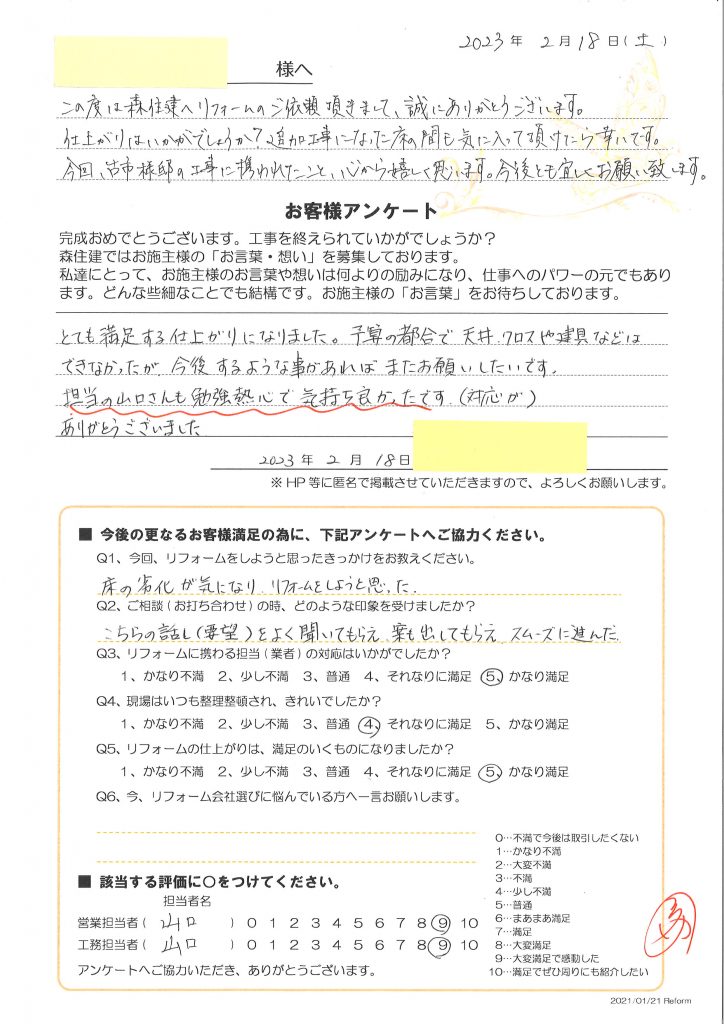 2023年 2月 18日(土)
様へ
この度は森住建へリフォームのご依頼頂きまして、誠にありがとうございます。
仕上がりはいかがでしょうか?追加工事になった床の間も気に入って頂けたら幸いです。
今回、古市様邸の工事に携われたこと、心から嬉しく思います。今後とも宜しくお願い致します。
お客様アンケート
完成おめでとうございます。工事を終えられていかがでしょうか?
森住建ではお施主様の「お言葉・想い」を募集しております。
私達にとって、お施主様のお言葉や想いは何よりの励みになり、仕事へのパワーの元でもあり
ます。どんな些細なことでも結構です。お施主様の「お言葉」をお待ちしております。
とても満足する仕上がりになりました。予算の都合で天井、クロスや建具などは
できなかったが、今後するような事があればまたお願いしたいです。
担当の山口さんも勉強熱心で気持ち良かったです。(対応が)
ありがとうございました
2023年 2月 18日
※HP等に匿名で掲載させていただきますので、よろしくお願いします。
■ 今後の更なるお客様満足の為に、下記アンケートへご協力ください。
Q1、今回、リフォームをしようと思ったきっかけをお教えください。
床の劣化が気になり、リフォームをしようと思った。
Q2、ご相談(お打ち合わせ)の時、どのような印象を受けましたか?
こちらの話し(要望)をよく聞いてもらえ、案も出してもらえ、スムーズに進んだ
Q3、リフォームに携わる担当(業者)の対応はいかがでしたか?
1、かなり不満 2、少し不満 3、普通 4、それなりに満足 5、かなり満足
Q4、現場はいつも整理整頓され、きれいでしたか?
1、かなり不満 2、少し不満 3、普通 4、それなりに満足 5、かなり満足
Q5、リフォームの仕上がりは、満足のいくものになりましたか?
1、かなり不満 2、少し不満 3、普通 4、それなりに満足 5、かなり満足
Q6、今、リフォーム会社選びに悩んでいる方へ一言お願いします。
■ 該当する評価に○をつけてください。
担当者名
営業担当者( 山口 ) 0 1 2 3 4 5 6 7 8 9 10
工務担当者( 山口 ) 0 1 2 3 4 5 6 7 8 9 10
アンケートへご協力いただき、ありがとうございます。
0…不満で今後は取引したくない
1…かなり不満
2…大変不満
3…不満
4…少し不満
5…普通
6…まあまあ満足
7…満足
8…大変満足
9…大変満足で感動した
10…満足でぜひ周りにも紹介したい
2021/01/21 Reform